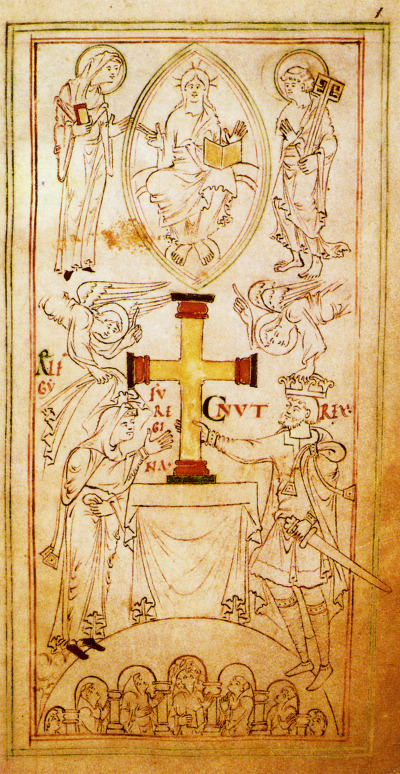 1
ÆLF
GẎ
FU
RE
GI
NA·
CNVT
REX·